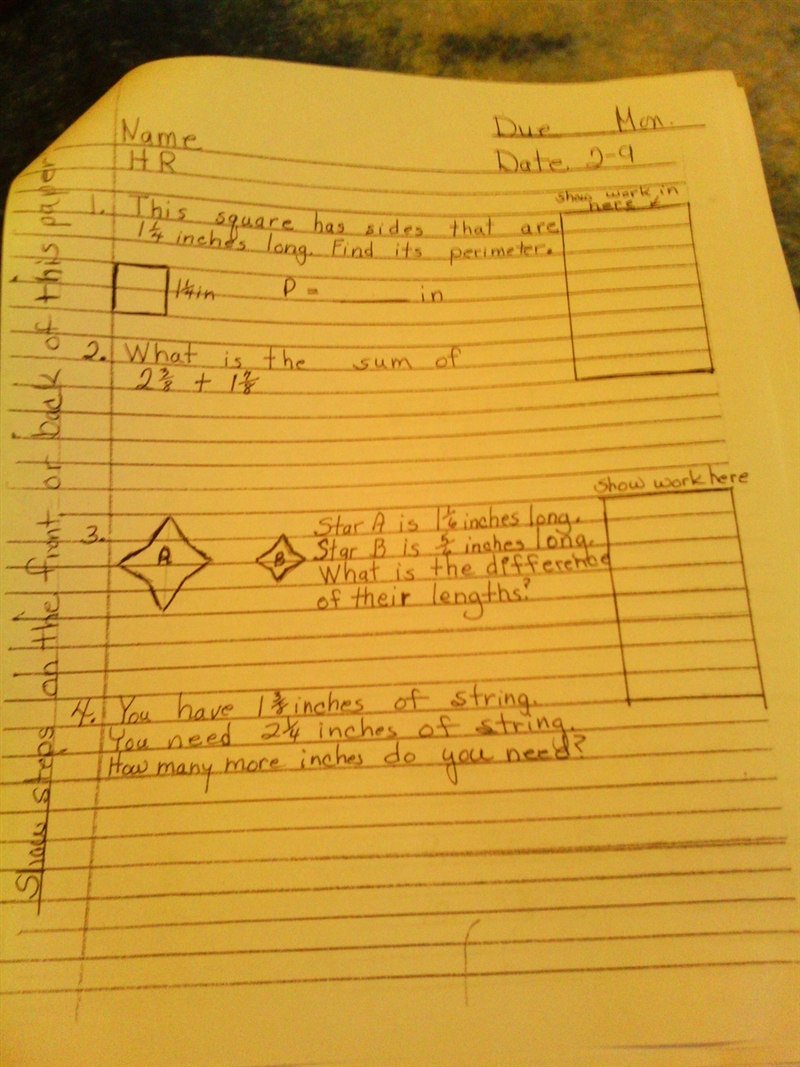 Name
Due Mon.
HR
Date. 2-9
show work in
here
1. This square has sides that are
1 1/4 inches long. Find its perimeter.
1 1/4 in P = ______ in
2. What is the sum of
2 3/8 + 1 7/8
show work here
3. A B Star A is 1 1/6 inches long.
Star B is 5/6 inches long.
What is the difference
of their lengths?
4. You have 1 3/8 inches of string.
You need 2 1/4 inches of string.
How many more inches do you need?
Show steps on the front or back of this paper